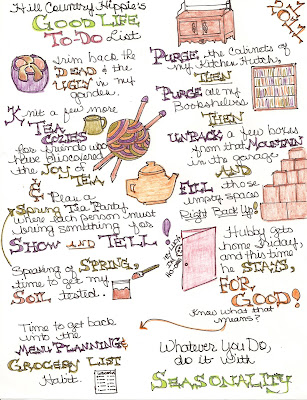 Hill Country Hippie's
GOOD LIFE
TO-DO List
2011
Trim back the
DEAD & the
UGLY in my
garden.
Knit a few more
TEA
COZIES
for friends who
have discovered
the JOY of
TEA
&
Plan a
Spring Tea Party
where each person must
bring something for
SHOW AND TELL!
Speaking of SPRING,
time to get my
SOIL tested..
Time to get back
into the
MENU PLANNING &
GROCERY LIST
Habit.
PURGE the Cabinets of
my Kitchen Hutch,
THEN
PURGE all my
Bookshelves
THEN
UNPACK a few boxes
from that MOUNTAIN
in the garage
AND
FILL those
empty space
Right Back Up!
Hubby gets
home Friday,
and this time
he STAYS,
FOR
GOOD!
Know what that
means?
Whatever You Do,
do it with
SEASONALITY